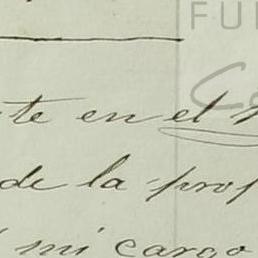 FU
te en el
de la prop
mi cargo